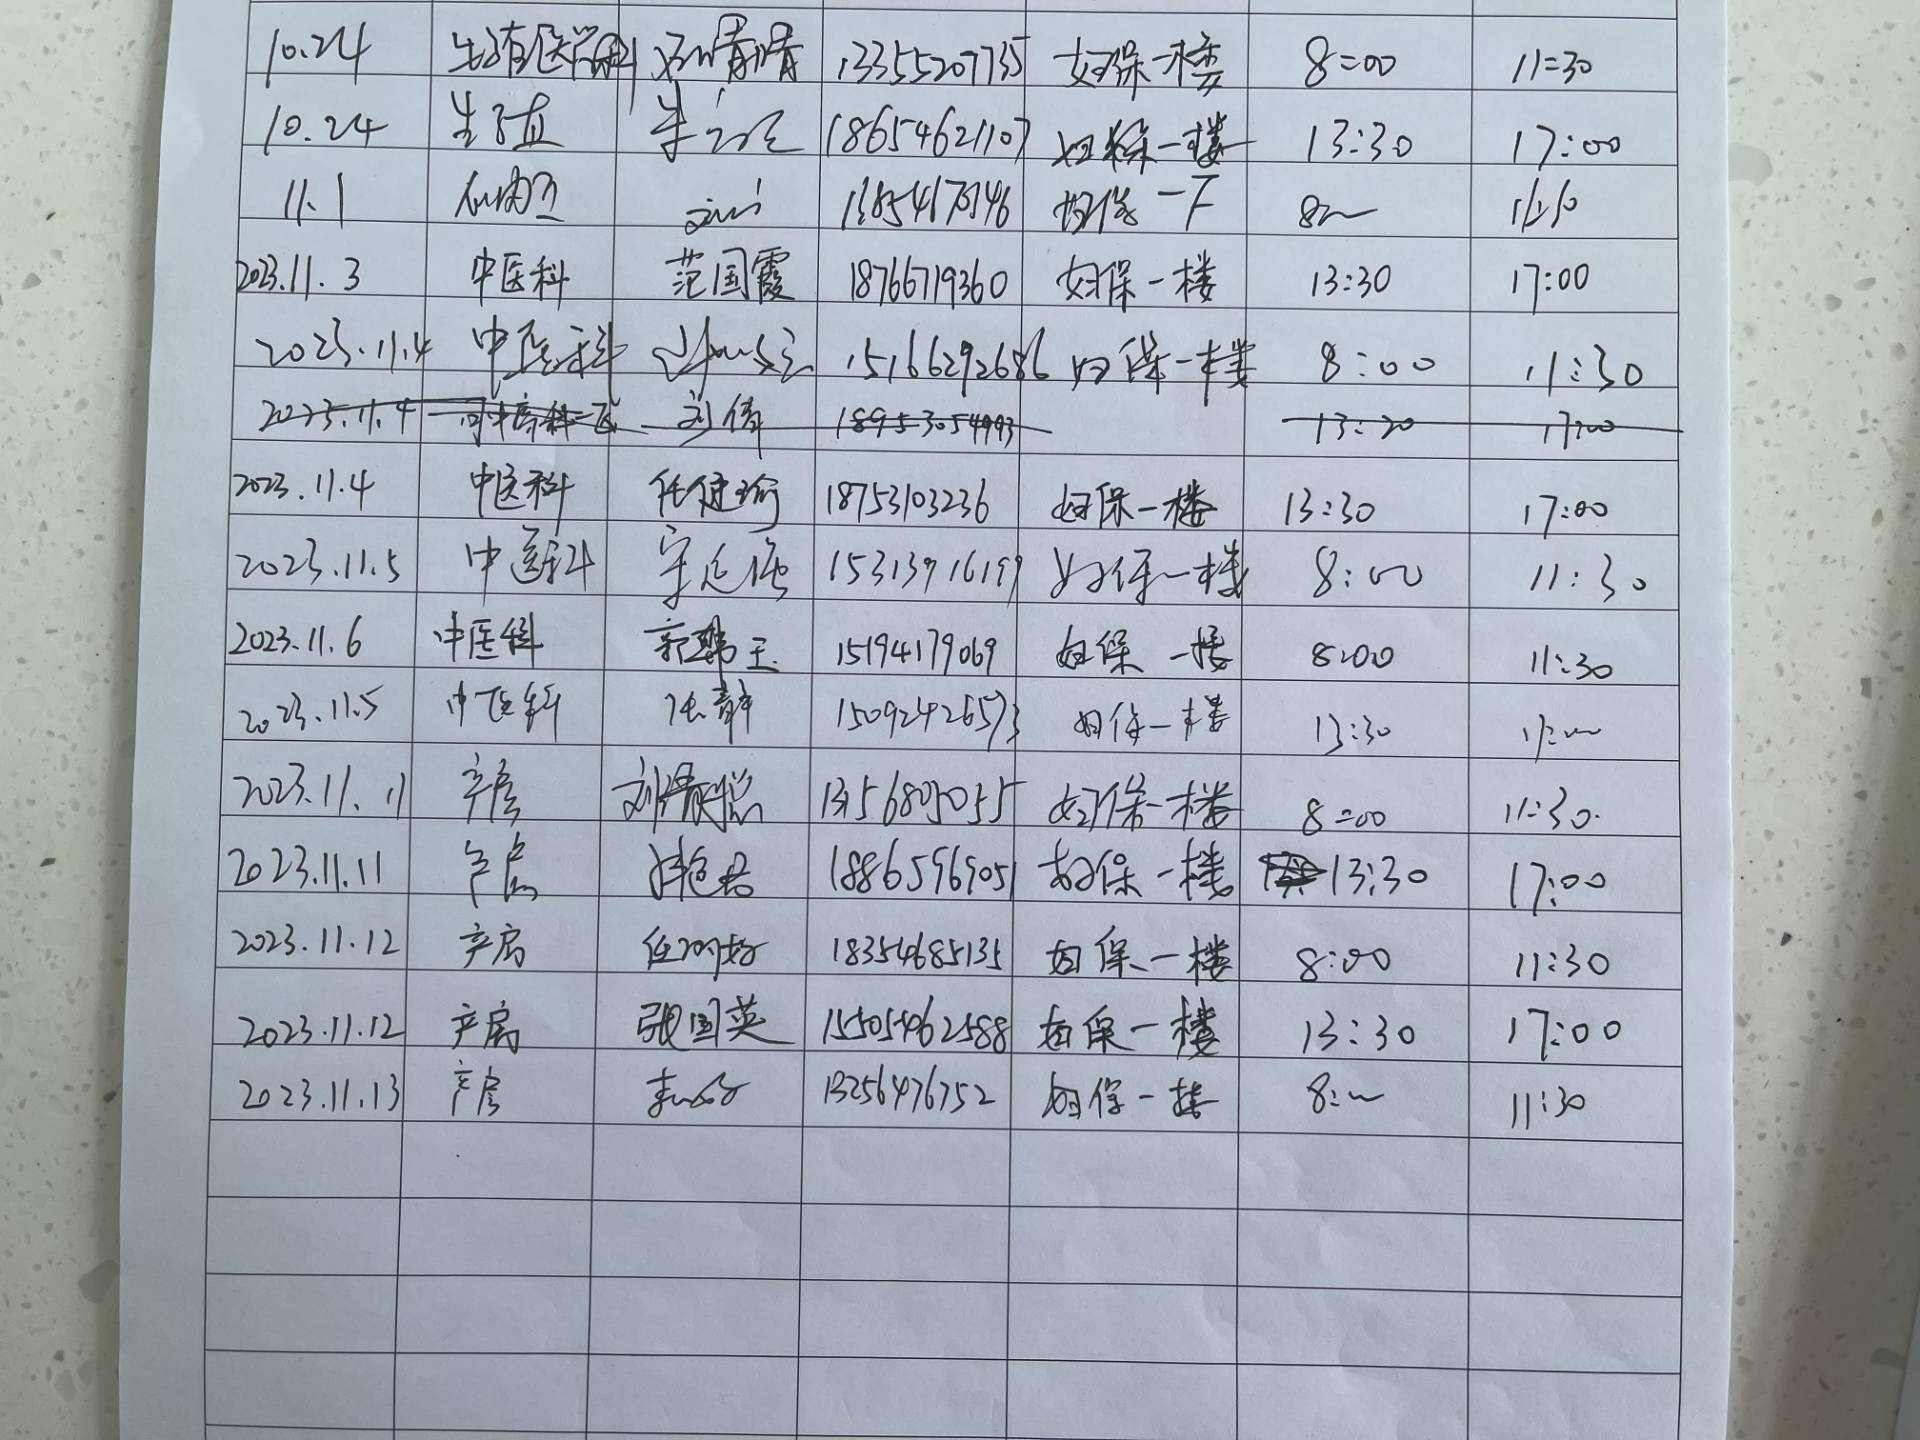 10.24 生殖医学科 13355207735 妇保一楼 8:00 11:30
10.24 生殖 18654621107 妇保一楼 13:30 17:00
11.1 妇保一下
2023.11.3 中医科 范国霞 18766719360 妇保一楼 13:30 17:00
2023.11.4 中医科 15166292686 妇保一楼 8:00 11:30
2023.11.4 刘倩 17:00
2023.11.4 中医科 任健瑜 18753103236 妇保一楼 13:30 17:00
2023.11.5 中医科 15313916199 妇保一楼 8:00 11:30
2023.11.6 中医科 15194179069 妇保一楼 8:00 11:30
2023.11.5 中医科 张静 15092426573 妇保一楼 13:30
2023.11.11 产房 妇保一楼 8:00 11:30
2023.11.11 产房 18865969051 妇保一楼 13:30 17:00
2023.11.12 产房 18354685135 妇保一楼 8:00 11:30
2023.11.12 产房 张国英 15505462588 妇保一楼 13:30 17:00
2023.11.13 产房 13256476752 妇保一楼 11:30